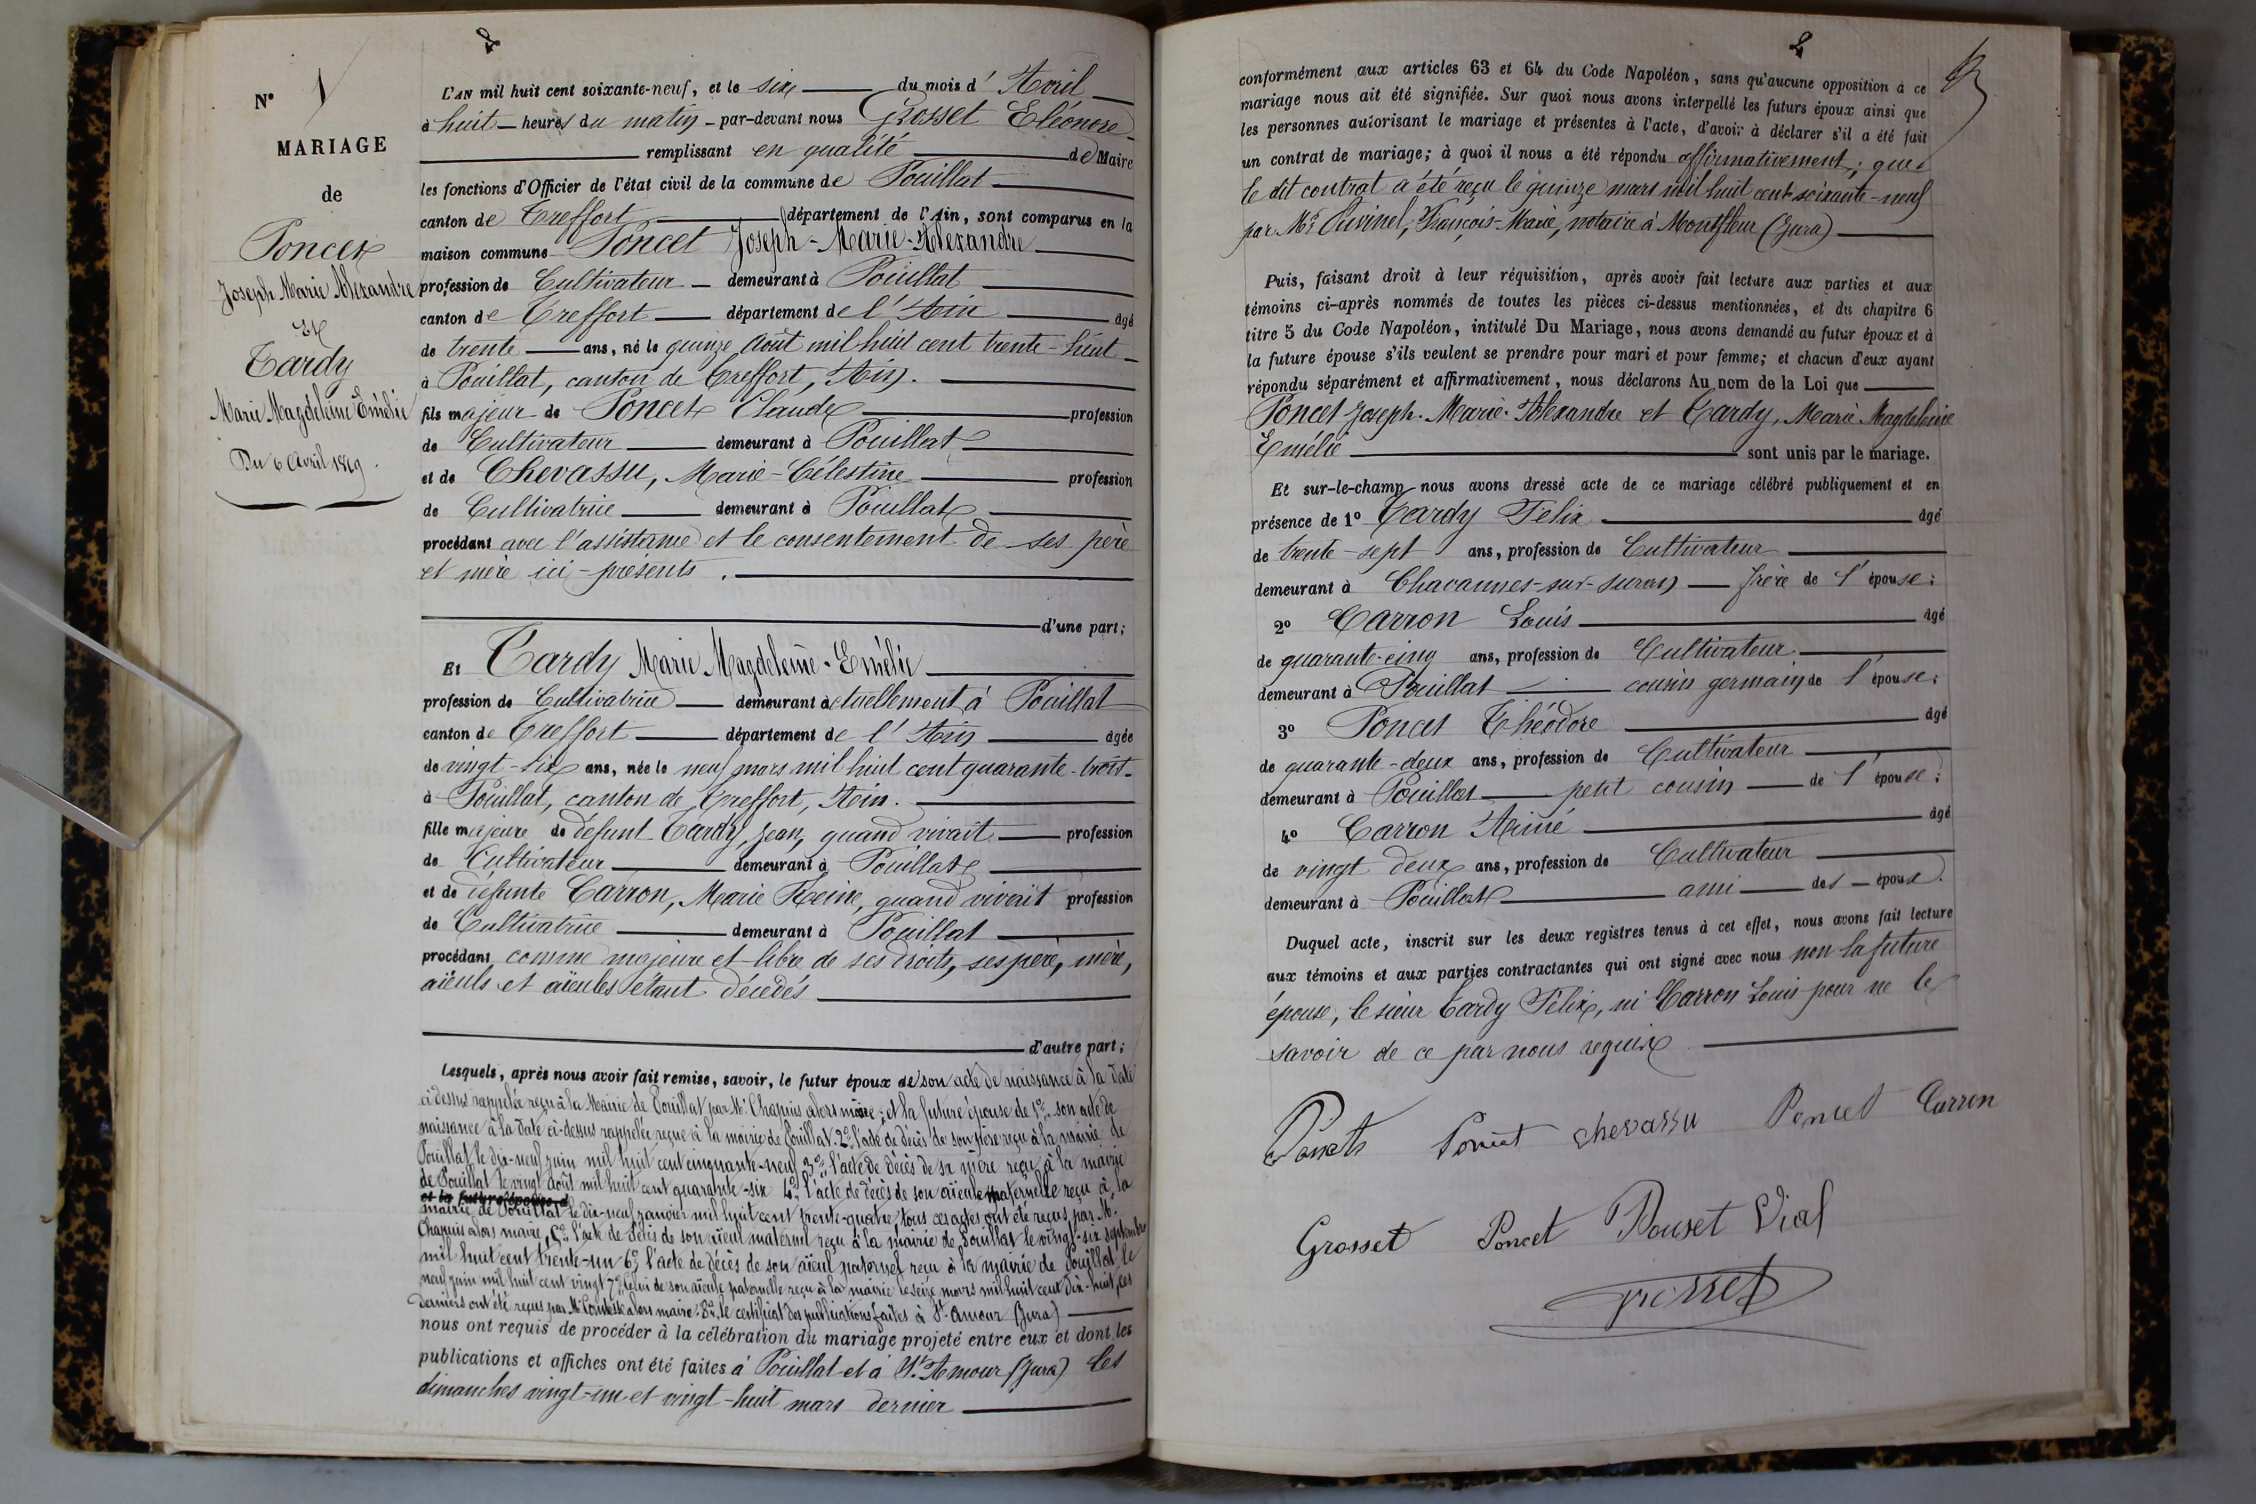 N° 1
MARIAGE
de
Poncet
Joseph Marie Alexandre
Et
Tardy
Marie Magdeleine Emélie
Du 6 Avril 1869.
L'AN mil huit cent soixante-neuf, et le six du mois d'Avril
à huit heures du matin par-devant nous Grosset Eléonore
remplissant en qualité de Maire
les fonctions d'Officier de l'état civil de la commune de Pouillat
canton de Treffort département de l'Ain, sont comparus en la
maison commune Poncet Joseph-Marie-Alexandre
profession de Cultivateur demeurant à Pouillat
canton de Treffort département de l'Ain âgé
de trente ans, né le quinze Août mil huit cent trente-huit
à Pouillat, canton de Treffort, Ain.
fils majeur de Poncet Claude profession
de Cultivateur demeurant à Pouillat
et de Chevassu, Marie-Célestine profession
de Cultivatrice demeurant à Pouillat
procédant avec l'assistance et le consentement de ses père
et mère ici-présents.
d'une part;
Et Tardy Marie Magdeleine-Emélie
profession de Cultivatrice demeurant actuellement à Pouillat
canton de Treffort département de l'Ain âgée
de vingt-six ans, née le neuf mars mil huit cent quarante-trois
à Pouillat, canton de Treffort, Ain.
fille majeure de défunt Tardy, Jean, quand vivait profession
de Cultivateur demeurant à Pouillat
et de défunte Carron, Marie Reine, quand vivait profession
de Cultivatrice demeurant à Pouillat
procédant comme majeure et libre de ses droits, ses père, mère,
aïeuls et aïeules étant décédés
d'autre part;
Lesquels, après nous avoir fait remise, savoir, le futur époux de son acte de naissance à la date
ci-dessus rappelée reçu à la Mairie de Pouillat par Mr Chapuis alors maire; et la future épouse de 1° son acte de
naissance à la date ci-dessus rappelée reçu à la mairie de Pouillat. 2° l'acte de décès de son père reçu à la mairie de
Pouillat, le dix-neuf juin mil huit cent cinquante-neuf 3° l'acte de décès de sa mère reçu à la mairie
de Pouillat le vingt août mil huit cent quarante-six 4° l'acte de décès de son aïeule maternelle reçu à la
et la future épouse d
mairie de Pouillat le dix-neuf janvier mil huit cent trente-quatre, tous ces actes ont été reçus par Mr
Chapuis alors maire, 5° l'acte de décès de son aïeul maternel reçu à la mairie de Pouillat le vingt-six septembre
mil huit cent trente-un 6° l'acte de décès de son aïeul paternel reçu à la mairie de Pouillat le
neuf juin mil huit cent vingt 7° celui de son aïeule paternelle reçu à la mairie le seize mars mil huit cent dix-huit, ces
derniers ont été reçus par Mr alors maire; 8° le certificat des publications faites à St Amour (Jura)
nous ont requis de procéder à la célébration du mariage projeté entre eux et dont les
publications et affiches ont été faites à Pouillat et à St Amour (Jura) les
dimanches vingt-un et vingt-huit mars dernier
conformément aux articles 63 et 64 du Code Napoléon, sans qu'aucune opposition à ce
mariage nous ait été signifiée. Sur quoi nous avons interpellé les futurs époux ainsi que
les personnes autorisant le mariage et présentes à l'acte, d'avoir à déclarer s'il a été fait
un contrat de mariage; à quoi il nous a été répondu affirmativement; que
le dit contrat a été reçu le quinze mars mil huit cent soixante-neuf
par Mr François-Marie, notaire à Montfleur (Jura)
Puis, faisant droit à leur réquisition, après avoir fait lecture aux parties et aux
témoins ci-après nommés de toutes les pièces ci-dessus mentionnées, et du chapitre 6
titre 5 du Code Napoléon, intitulé Du Mariage, nous avons demandé au futur époux et à
la future épouse s'ils veulent se prendre pour mari et pour femme; et chacun d'eux ayant
répondu séparément et affirmativement, nous déclarons Au nom de la Loi que
Poncet Joseph-Marie-Alexandre et Tardy, Marie-Magdeleine
Emélie sont unis par le mariage.
Et sur-le-champ nous avons dressé acte de ce mariage célébré publiquement et en
présence de 1° Tardy Félix âgé
de trente-sept ans, profession de Cultivateur
demeurant à Chavannes-sur-Suran frère de l'épouse;
2° Carron Louis âgé
de quarante-cinq ans, profession de Cultivateur
demeurant à Pouillat cousin germain de l'épouse;
3° Poncet Théodore âgé
de quarante-deux ans, profession de Cultivateur
demeurant à Pouillat petit cousin de l'épouse;
4° Carron Aimé âgé
de vingt deux ans, profession de Cultivateur
demeurant à Pouillat ami des époux.
Duquel acte, inscrit sur les deux registres tenus à cet effet, nous avons fait lecture
aux témoins et aux parties contractantes qui ont signé avec nous non la future
épouse, le sieur Tardy Félix, ni Carron Louis pour ne le
savoir de ce par nous requis
Poncet Poncet chevassu Poncet Carron
Grosset Poncet Vial
Grosset